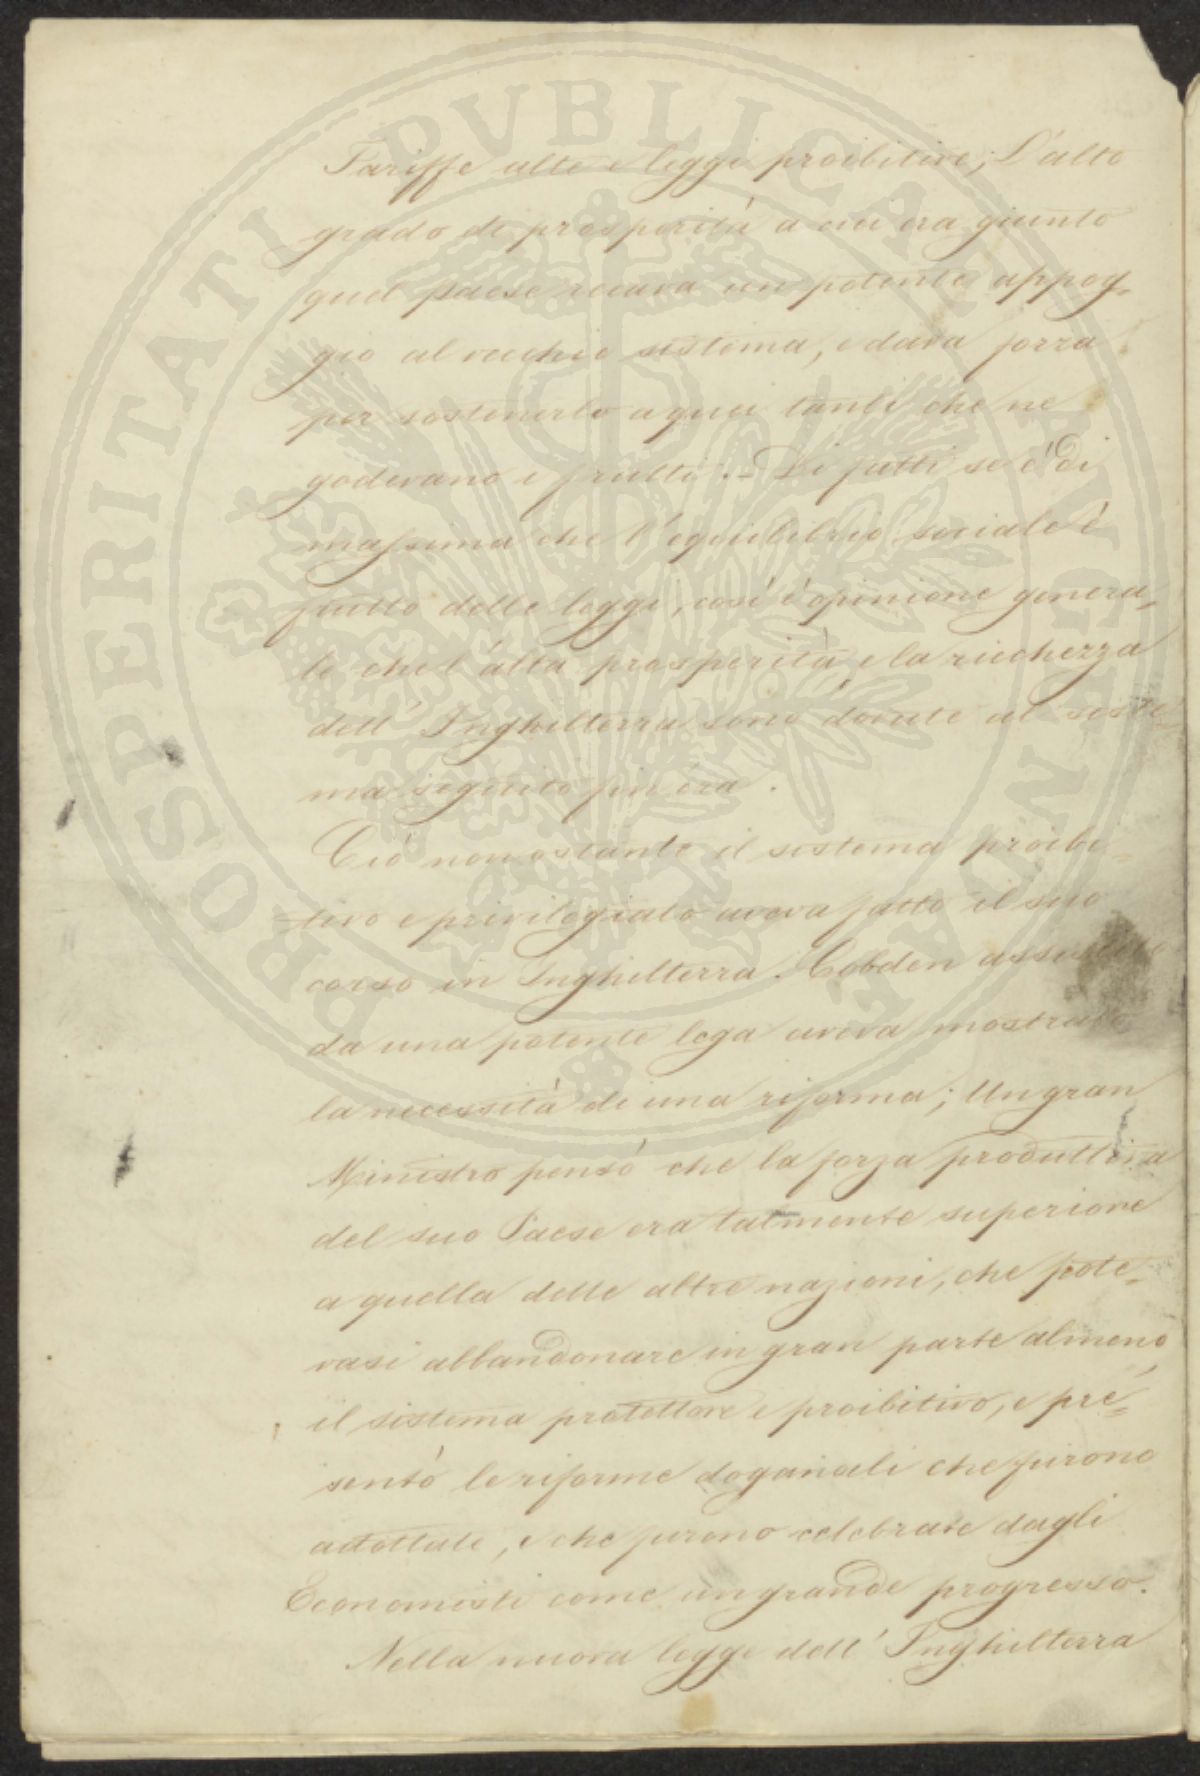 PROSPERITATI PVBLICAE AVGENDAE
Tariffe alte e leggi proibitive; L'alto
grado di prosperità a cui era giunto
quel paese recava un potente appog=
gio al vecchio sistema, e dava forza
per sostenerlo a quei tanti che ne
godevano i frutti. – Di fatti se è di
massima che l'equilibrio sociale è
frutto delle leggi, così è opinione genera=
le che l'alta prosperità, e la ricchezza
dell'Inghilterra sono dovute al siste=
ma seguito fin'ora.
Ciò non ostante il sistema proibi=
tivo e privilegiato aveva fatto il suo
corso in Inghilterra. Cobden
da una potente lega aveva mostrato
la necessità di una riforma; Un gran
Ministro pensò che la forza produttiva
del suo Paese era talmente superiore
a quella delle altre nazioni, che pote=
vasi abbandonare in gran parte almeno
il sistema protettore e proibitivo, e pre=
sentò le riforme doganali che furono
adottate, e che furono celebrate dagli
Economisti come un grande progresso.
Nella nuova legge dell'Inghilterra